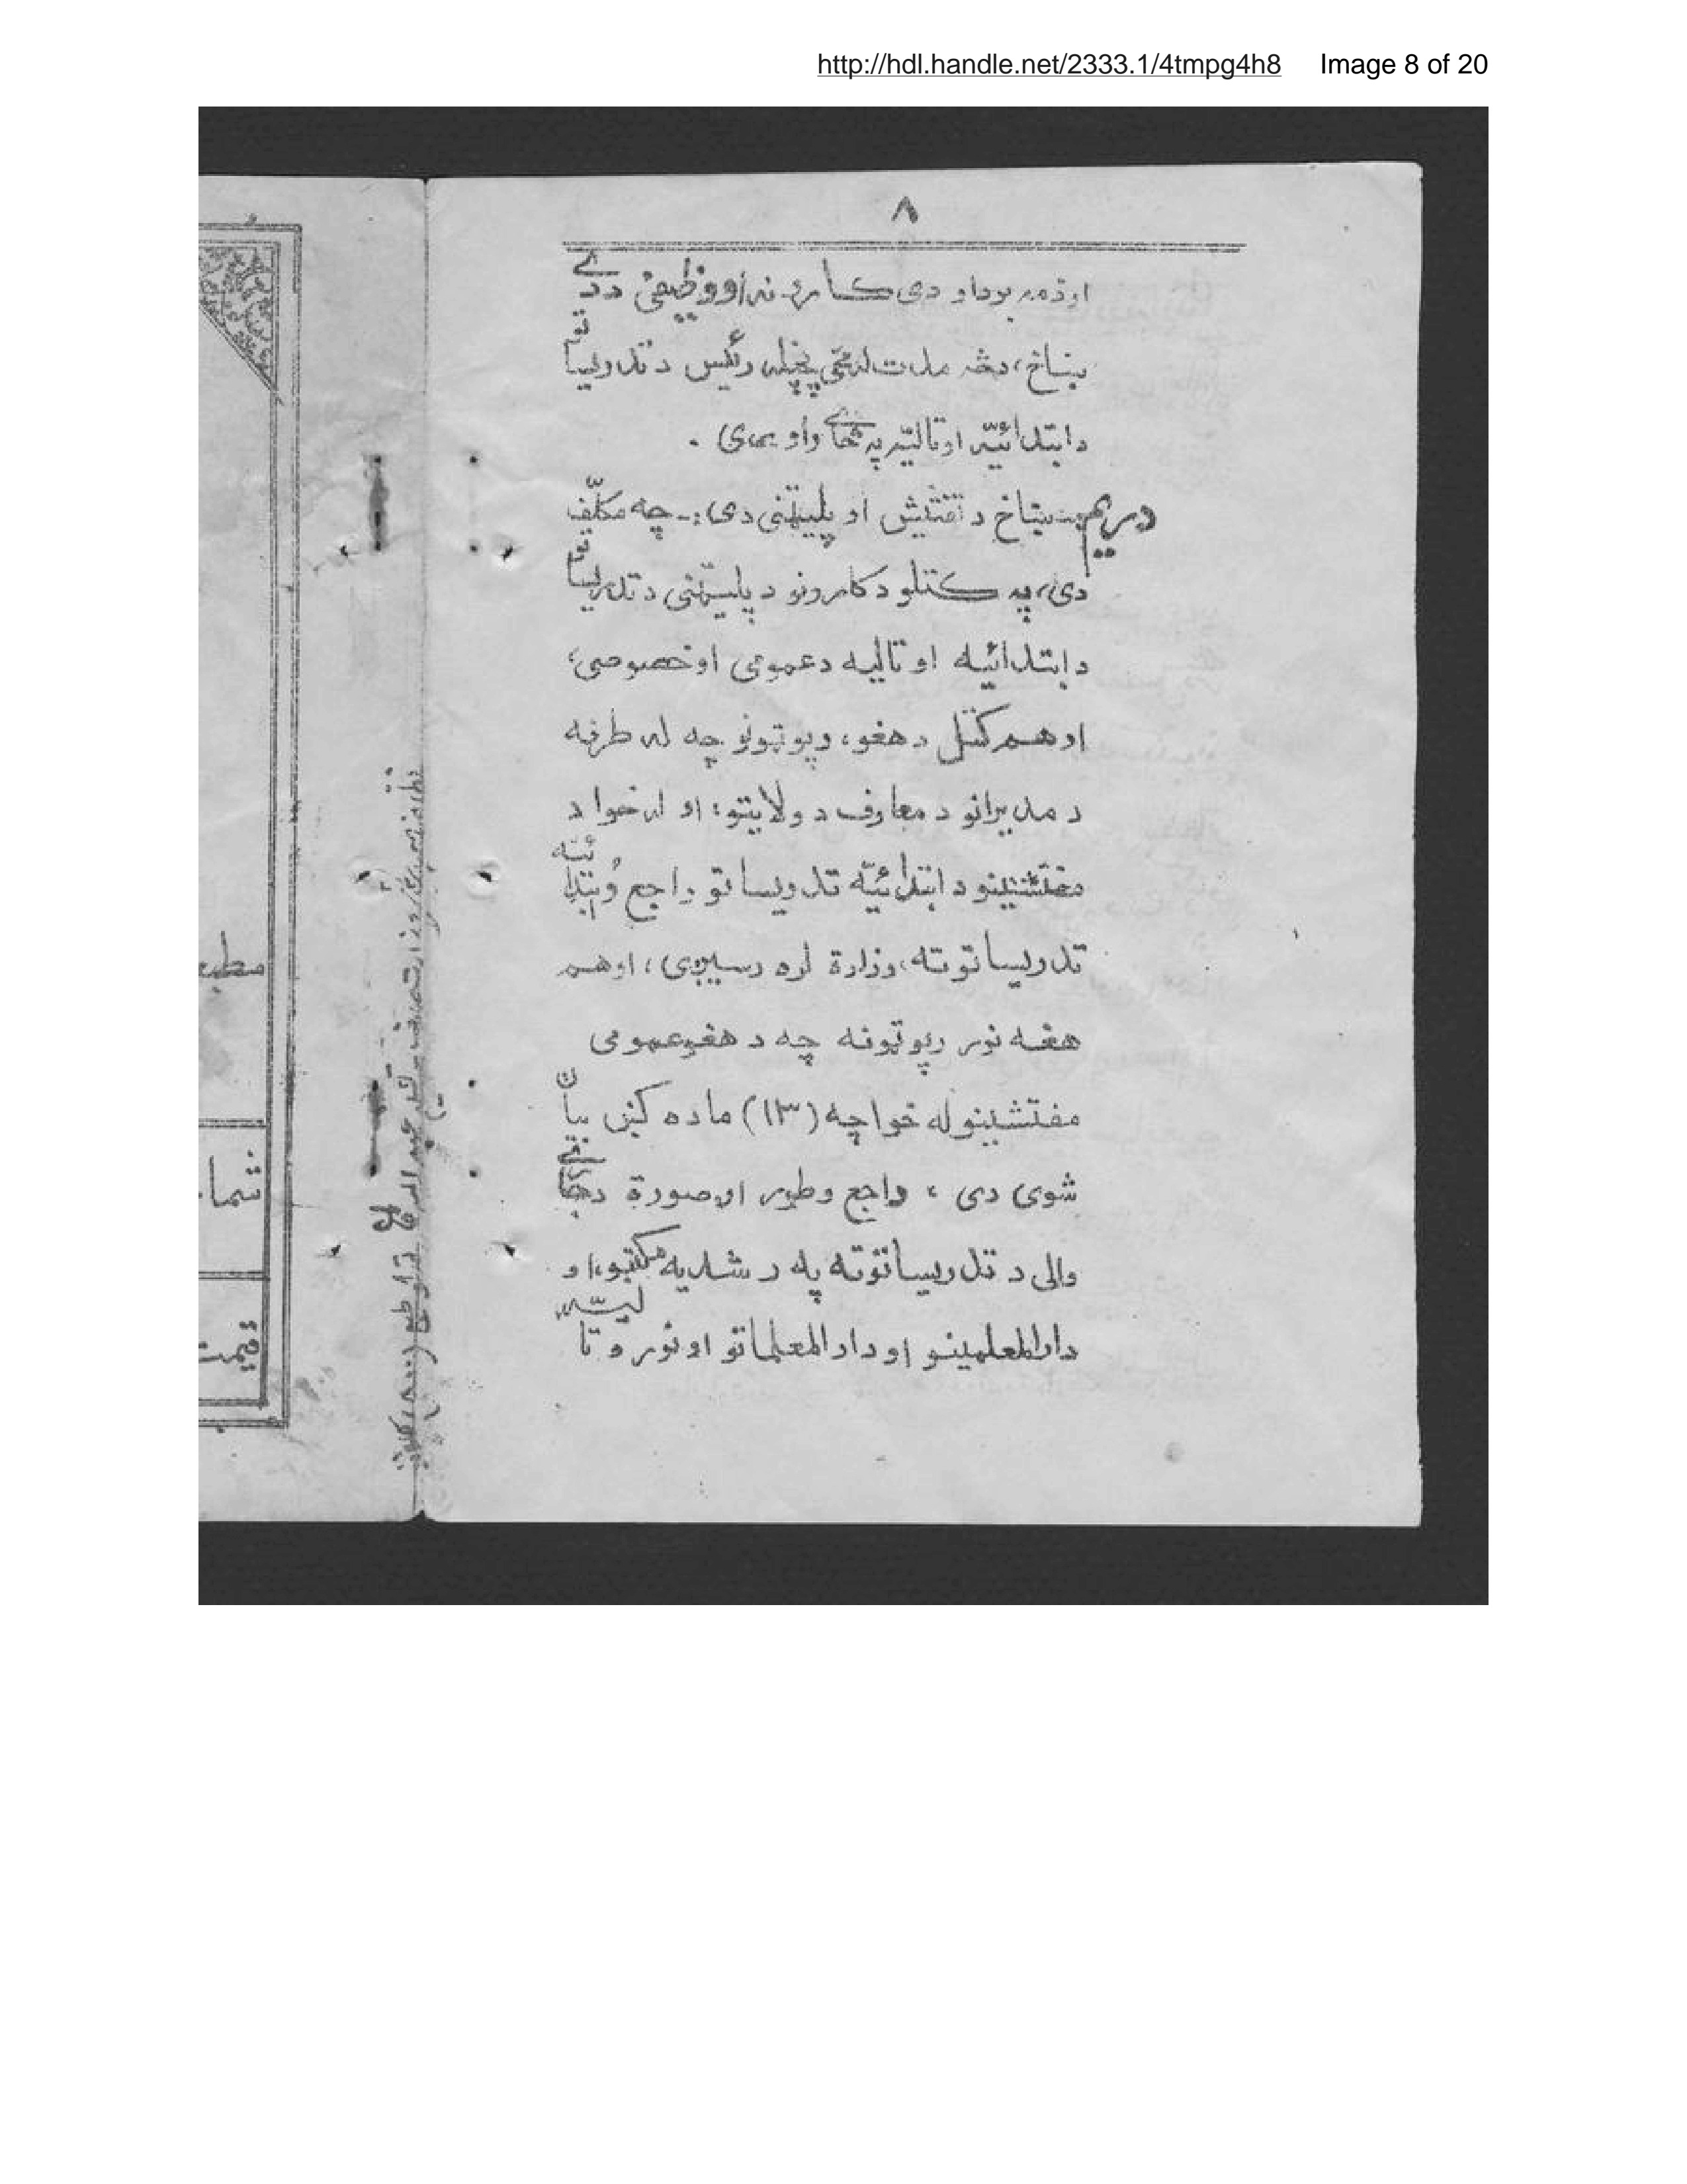 http://hdl.handle.net/2333.1/4tmpg4h8 Image 8 of 20
۸
اوذمه بوداو دی کارونه اووظیفی ددے
ښاخ، دغه رئیس د تدریساتو
دابتدائیّه اوتالیّه په ځاے واو
دریم ښاخ د تفتیش او پلیټنی دی:- چه مکلّف
دی، په کتلو د کارونو د پلیټنی د تدریساتو
دابتدائیه او تالیه دعمومی اوخصوصی،
اوهم کتل دهغو، رپوټونو چه له طرفه
د مدیرانو د معارف د ولایتو؛ او له خوا د
مفتشینو د ابتدائیّه تدریساتو راجع وُ ابتدائیّه
تدریساتوته، وزارة لره رسیږی، اوهم
هغه نور رپوټونه چه د هغو عمومی
مفتشینو له خوا چه (۱۳) ماده کښ بیان
شوی دی، راجع وطور او صورة د
والی د تدریساتوته په رشدیه مکتبو، او
دارالمعلمینو او دارالمعلماتو او نورو تالیّه
مطبع
شما
قیمت